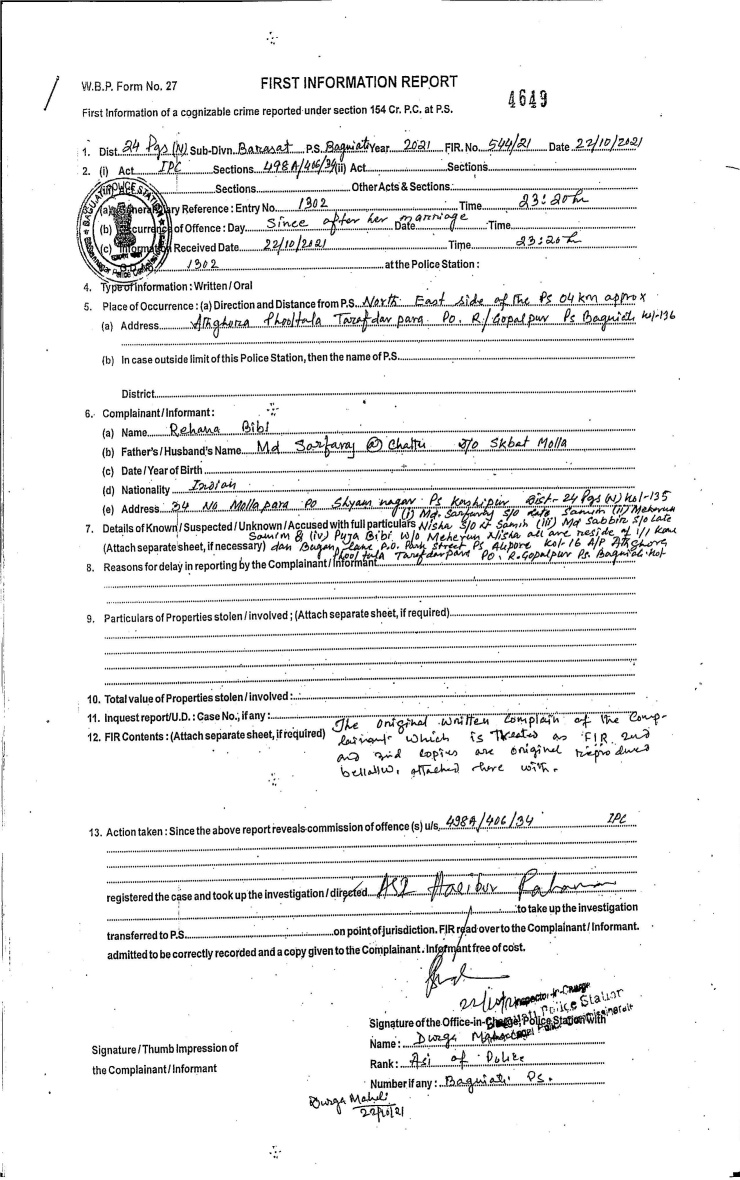 W.B.P. Form No. 27
FIRST INFORMATION REPORT
4649
First Information of a cognizable crime reported under section 154 Cr. P.C. at P.S.
1. Dist. 24 Pgs (N) Sub-Divn. Barasat P.S. Baguiati Year 2021 FIR. No. 544/21 Date 22/10/2021
2. (i) Act IPC Sections 498A/406/34 (ii) Act Sections
Sections Other Acts & Sections
(a) General Diary Reference : Entry No. 1302 Time 23:20 h
(b) Occurrence of Offence : Day Since after her marriage Date Time
(c) Information Received Date 22/10/2021 Time 23:20 h
1302 at the Police Station :
4. Type of information : Written / Oral
5. Place of Occurrence : (a) Direction and Distance from P.S. North East side of the PS 04 km approx
(a) Address Athghora Phooltala Tarafdar para PO. R/Gopalpur Ps Baguiati Kol-136
(b) In case outside limit of this Police Station, then the name of P.S.
District
6. Complainant / Informant :
(a) Name Rehana Bibi
(b) Father's / Husband's Name Md Sarfaraj @ Chattu D/O Skbat Molla
(c) Date / Year of Birth
(d) Nationality Indian
(e) Address 34 No Mollapara PO Shyam nagar Ps Kashipur Dist- 24 Pgs (N) Kol-135
(i) Md. Sarfaraj S/O Late Samim (ii) Meherun
7. Details of Known / Suspected / Unknown / Accused with full particulars Nisha S/O Lt Samin (iii) Md Sabbir S/O Late
Samim & (iv) Puja Bibi W/O Meherun Nisha all are reside of 1/1
(Attach separate sheet, if necessary) dan Bugan Lane P.O. Park Street Ps Alipore Kol-16 A/P Athghora
Phooltula Tarafdarpara PO. R. Gopalpur Ps. Baguiati Kol
8. Reasons for delay in reporting by the Complainant / Informant
9. Particulars of Properties stolen / involved ; (Attach separate sheet, if required)
10. Total value of Properties stolen / involved :
11. Inquest report / U.D. : Case No., if any :
12. FIR Contents : (Attach separate sheet, if required) The original written complain of the Comp-
lainant which is treated as FIR and
and 2nd copies are original reproduced
bellallw, attached here with.
13. Action taken : Since the above report reveals commission of offence (s) u/s. 498A/406/34 IPC
registered the case and took up the investigation / directed ASI Habibur Rahaman
to take up the investigation
transferred to P.S. on point of jurisdiction. FIR read over to the Complainant / Informant.
admitted to be correctly recorded and a copy given to the Complainant. Informant free of cost.
Inspector-in-Charge
Police Station
Signature of the Office-in-Charge, Police Station with
Name : Durga
Signature / Thumb Impression of
the Complainant / Informant
Rank : Asi of Police
Number if any : Baguiati Ps.
Durga Maheli
22/10/21